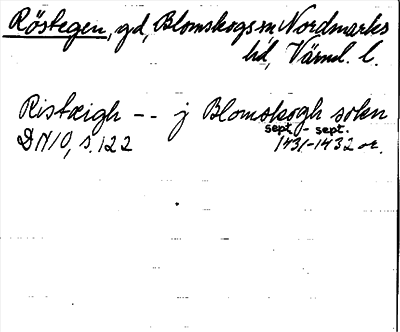 Röstegen, gd, Blomskogs sn Nordmarks
hd, Värml. l.
Ristæigh -- j Blomskogh sokn
sept. - sept.
DN 10, s. 122 1431-1432 or.